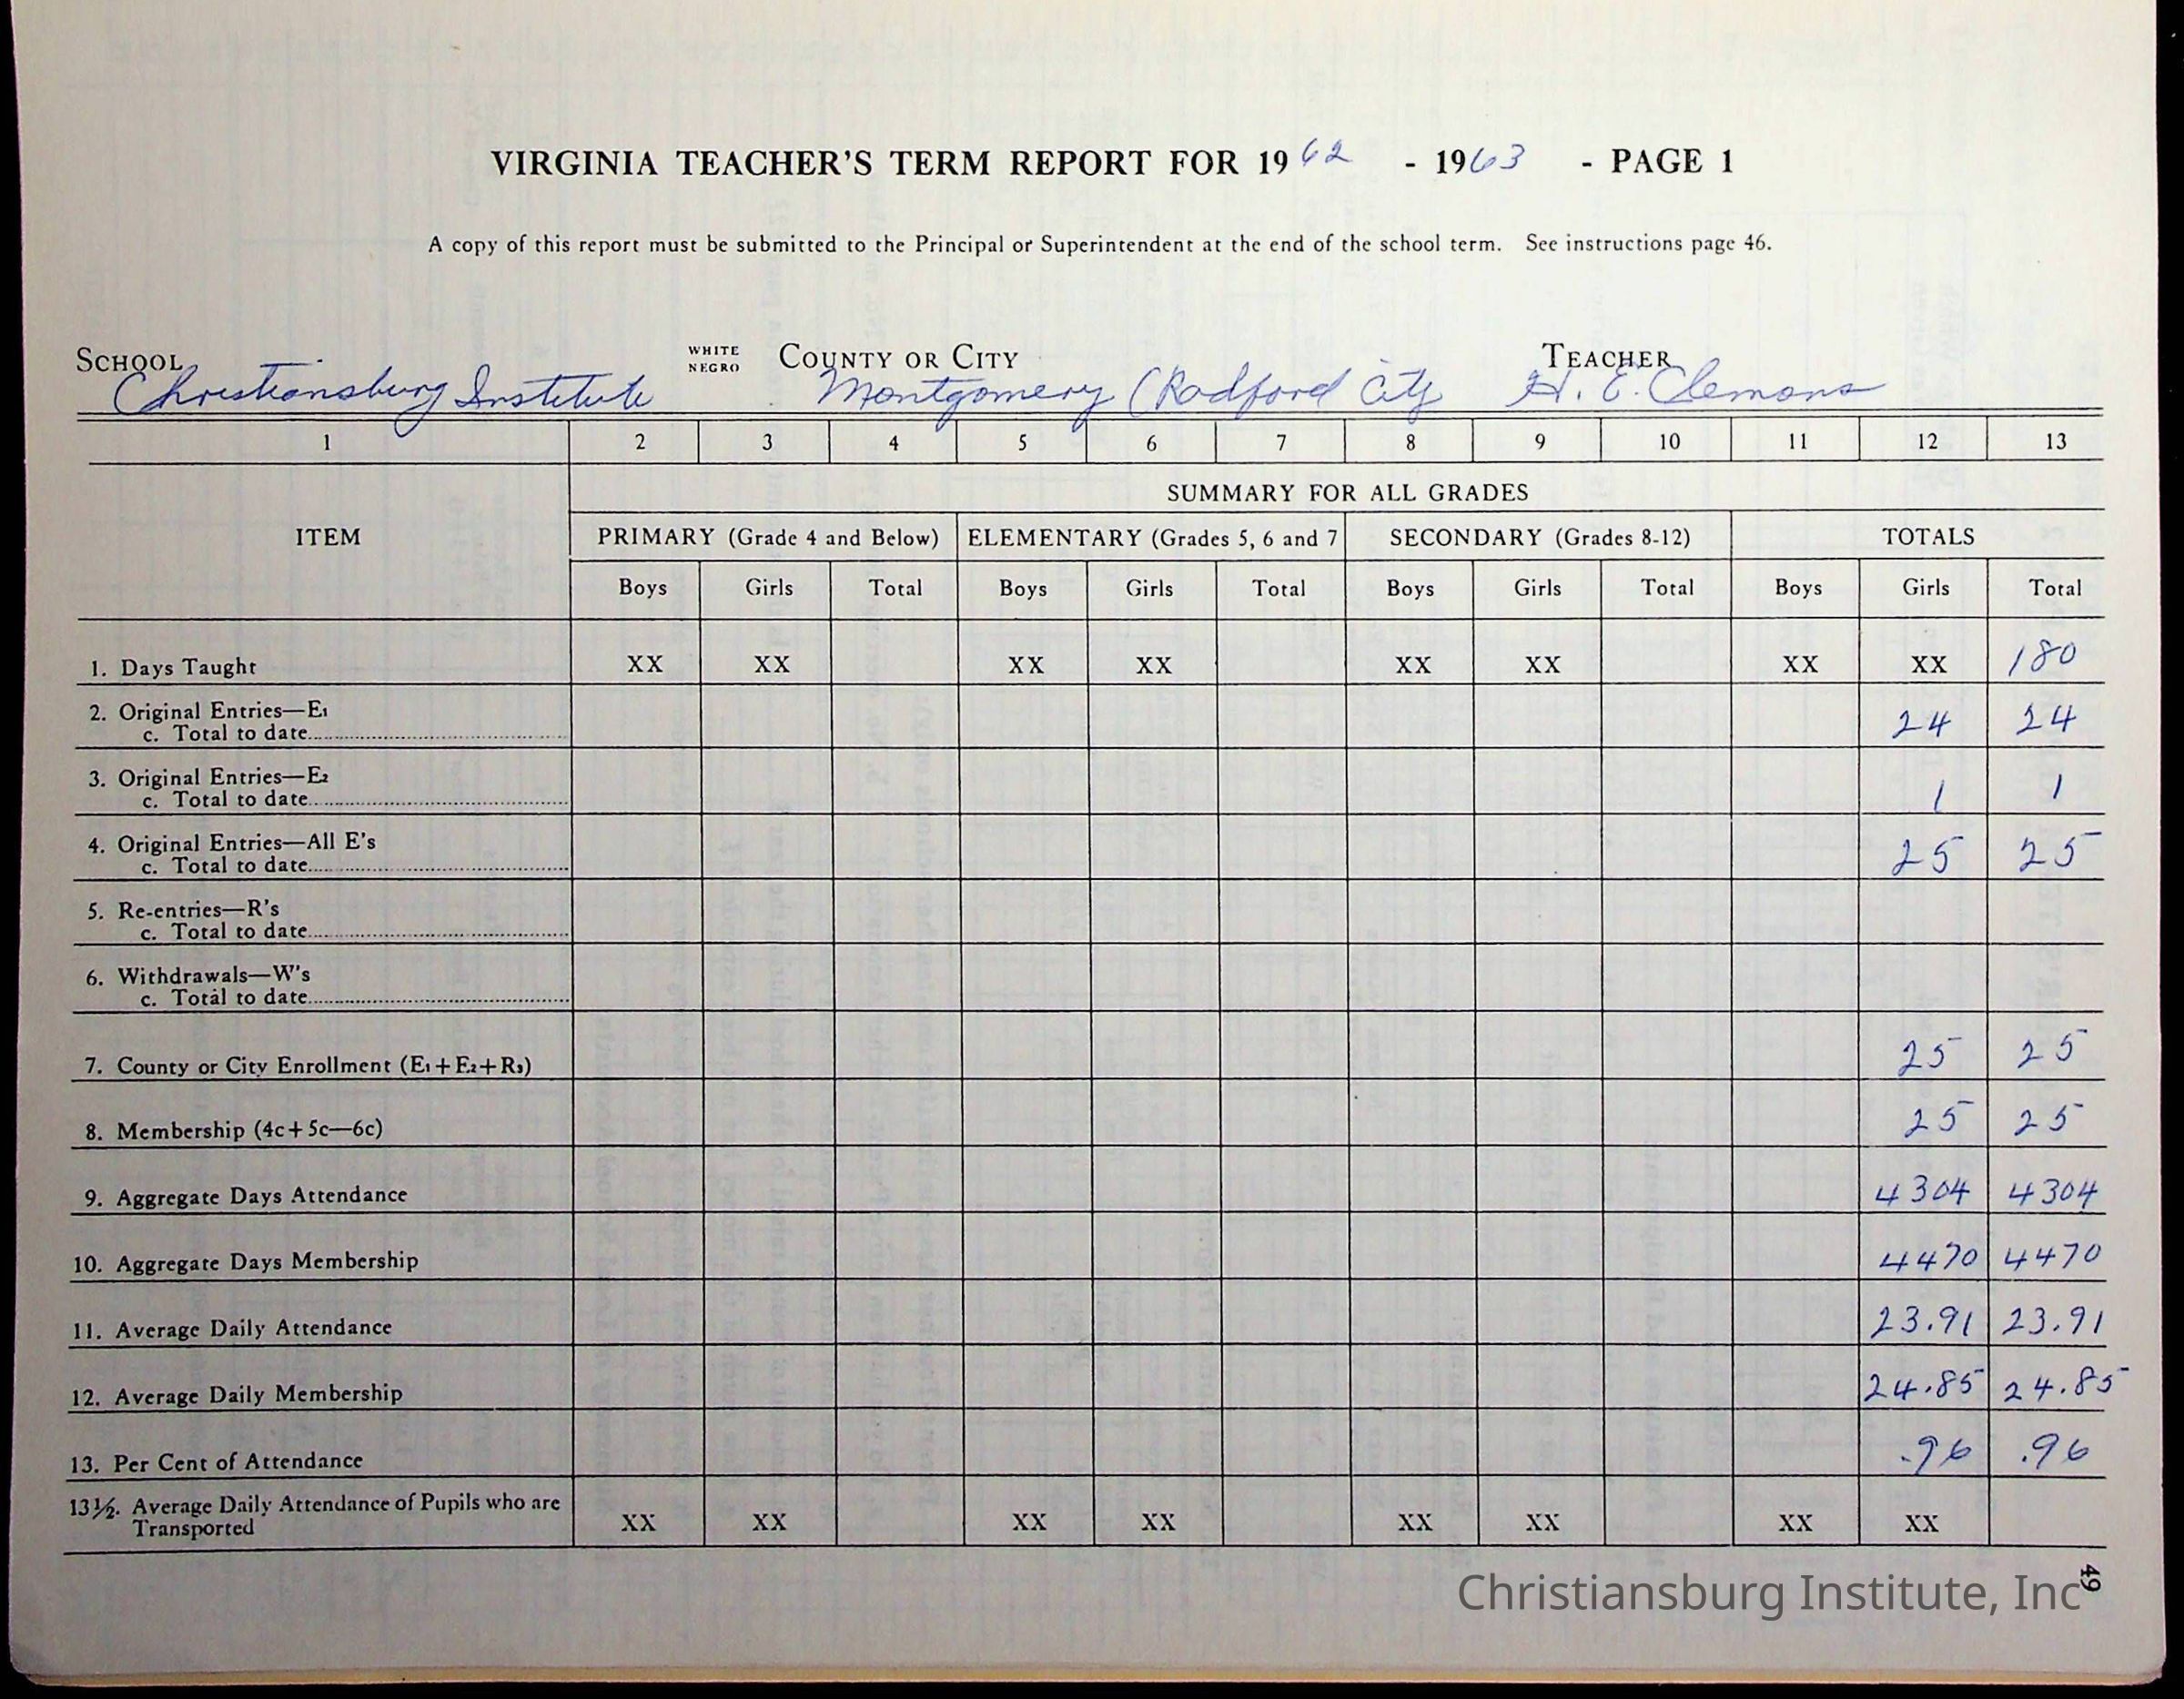 VIRGINIA TEACHER'S TERM REPORT FOR 1962 - 1963 - PAGE 1
A copy of this report must be submitted to the Principal or Superintendent at the end of the school term. See instructions page 46.
SCHOOL WHITE NEGRO COUNTY OR CITY TEACHER
Christiansburg Institute Montgomery (Radford City H. E. Clemons
1 2 3 4 5 6 7 8 9 10 11 12 13
SUMMARY FOR ALL GRADES
ITEM PRIMARY (Grade 4 and Below) ELEMENTARY (Grades 5, 6 and 7 SECONDARY (Grades 8-12) TOTALS
Boys Girls Total Boys Girls Total Boys Girls Total Boys Girls Total
1. Days Taught XX XX XX XX XX XX XX XX 180
2. Original Entries—E1
c. Total to date 24 24
3. Original Entries—E2
c. Total to date 1 1
4. Original Entries—All E's
c. Total to date 25 25
5. Re-entries—R's
c. Total to date
6. Withdrawals—W's
c. Total to date
7. County or City Enrollment (E1+E2+R3) 25 25
8. Membership (4c+5c—6c) 25 25
9. Aggregate Days Attendance 4304 4304
10. Aggregate Days Membership 4470 4470
11. Average Daily Attendance 23.91 23.91
12. Average Daily Membership 24.85 24.85
13. Per Cent of Attendance .96 .96
13½. Average Daily Attendance of Pupils who are
Transported XX XX XX XX XX XX XX XX
49
Christiansburg Institute, Inc